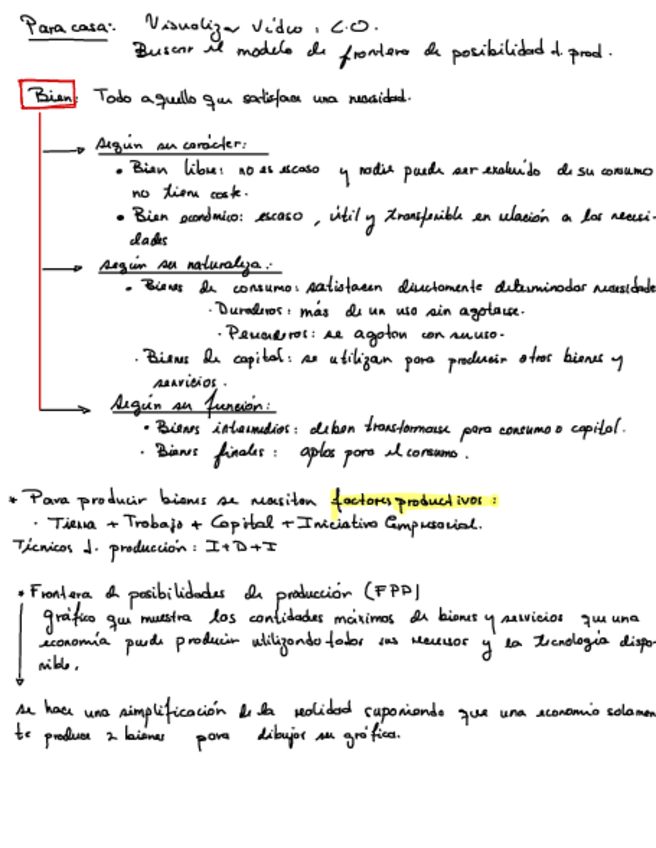 Para casa: Visualizar Vídeo, C.O.
Buscar el modelo de frontera de posibilidad d. prod.
Bien: Todo aquello que satisface una necesidad.
Según su carácter:
• Bien libre: no es escaso y nadie puede ser excluido de su consumo
no tiene coste.
• Bien económico: escaso, útil y transferible en relación a las necesi-
dades
Según su naturaleza:
• Bienes de consumo: satisfacen directamente determinadas necesidade
· Duraderos: más de un uso sin agotarse.
· Perecederos: se agotan con su uso.
· Bienes de capital: se utilizan para producir otros bienes y
servicios.
Según su función:
• Bienes intermedios: deben transformarse para consumo o capital.
· Bienes finales: aptos para el consumo.
* Para producir bienes se necesitan factores productivos:
· Tierra + Trabajo + Capital + Iniciativa Empresarial.
Técnicas d. producción: I+D+I
* Frontera de posibilidades de producción (FPP)
gráfico que muestra las cantidades máximas de bienes y servicios que una
economía puede producir utilizando todos sus recursos y la tecnología dispo-
nible.
se hace una simplificación de la realidad suponiendo que una economía solamen
te produce 2 bienes para dibujar su gráfica.